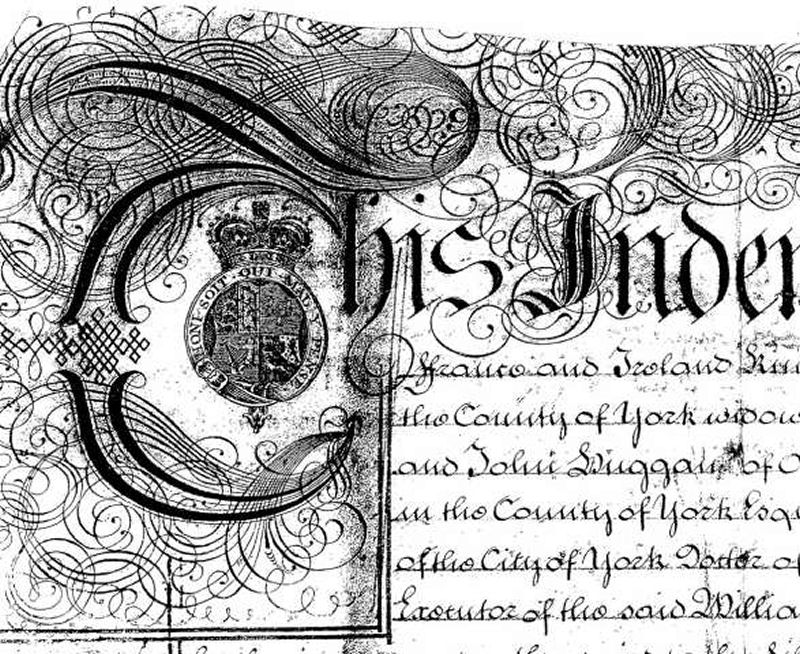 HONI·SOIT·QUI·MAL·Y·PENSE
This Inden
ffrance and Ireland Kin
the County of York widow
and John Duggan of
in the County of York Esq
of the City of York Doctor of
Executor of the said Willia